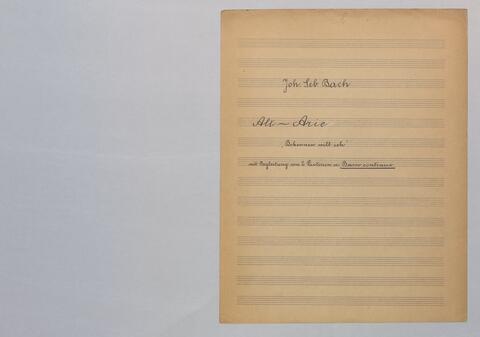 Joh. Seb Bach
Alt – Arie
„Bekennen will ich“
mit Begleitung von 2 Violinen u. Basso continuo.